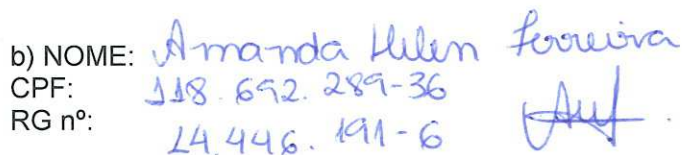 b) NOME: Amanda Helen Ferreira
CPF: 118.692.289-36
RG nº: 14.446.191-6